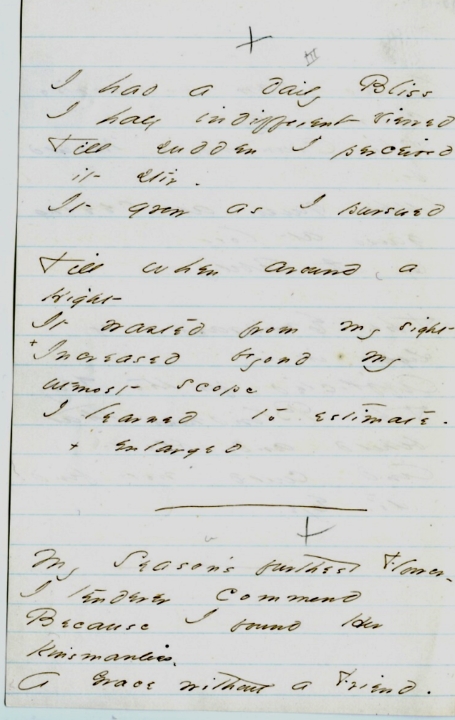 +
III
I had a daily Bliss
I half indifferent viewed
Till sudden I perceived
it stir.
It grew as I pursued
Till when around a
Hight
It wasted from my sight
+ Increased beyond my
utmost scope
I learned to estimate.
+ enlarged
+
My Season's furthest Flower -
I tenderer commend
Because I found Her
Kinsmanless.
A Grace without a Friend.